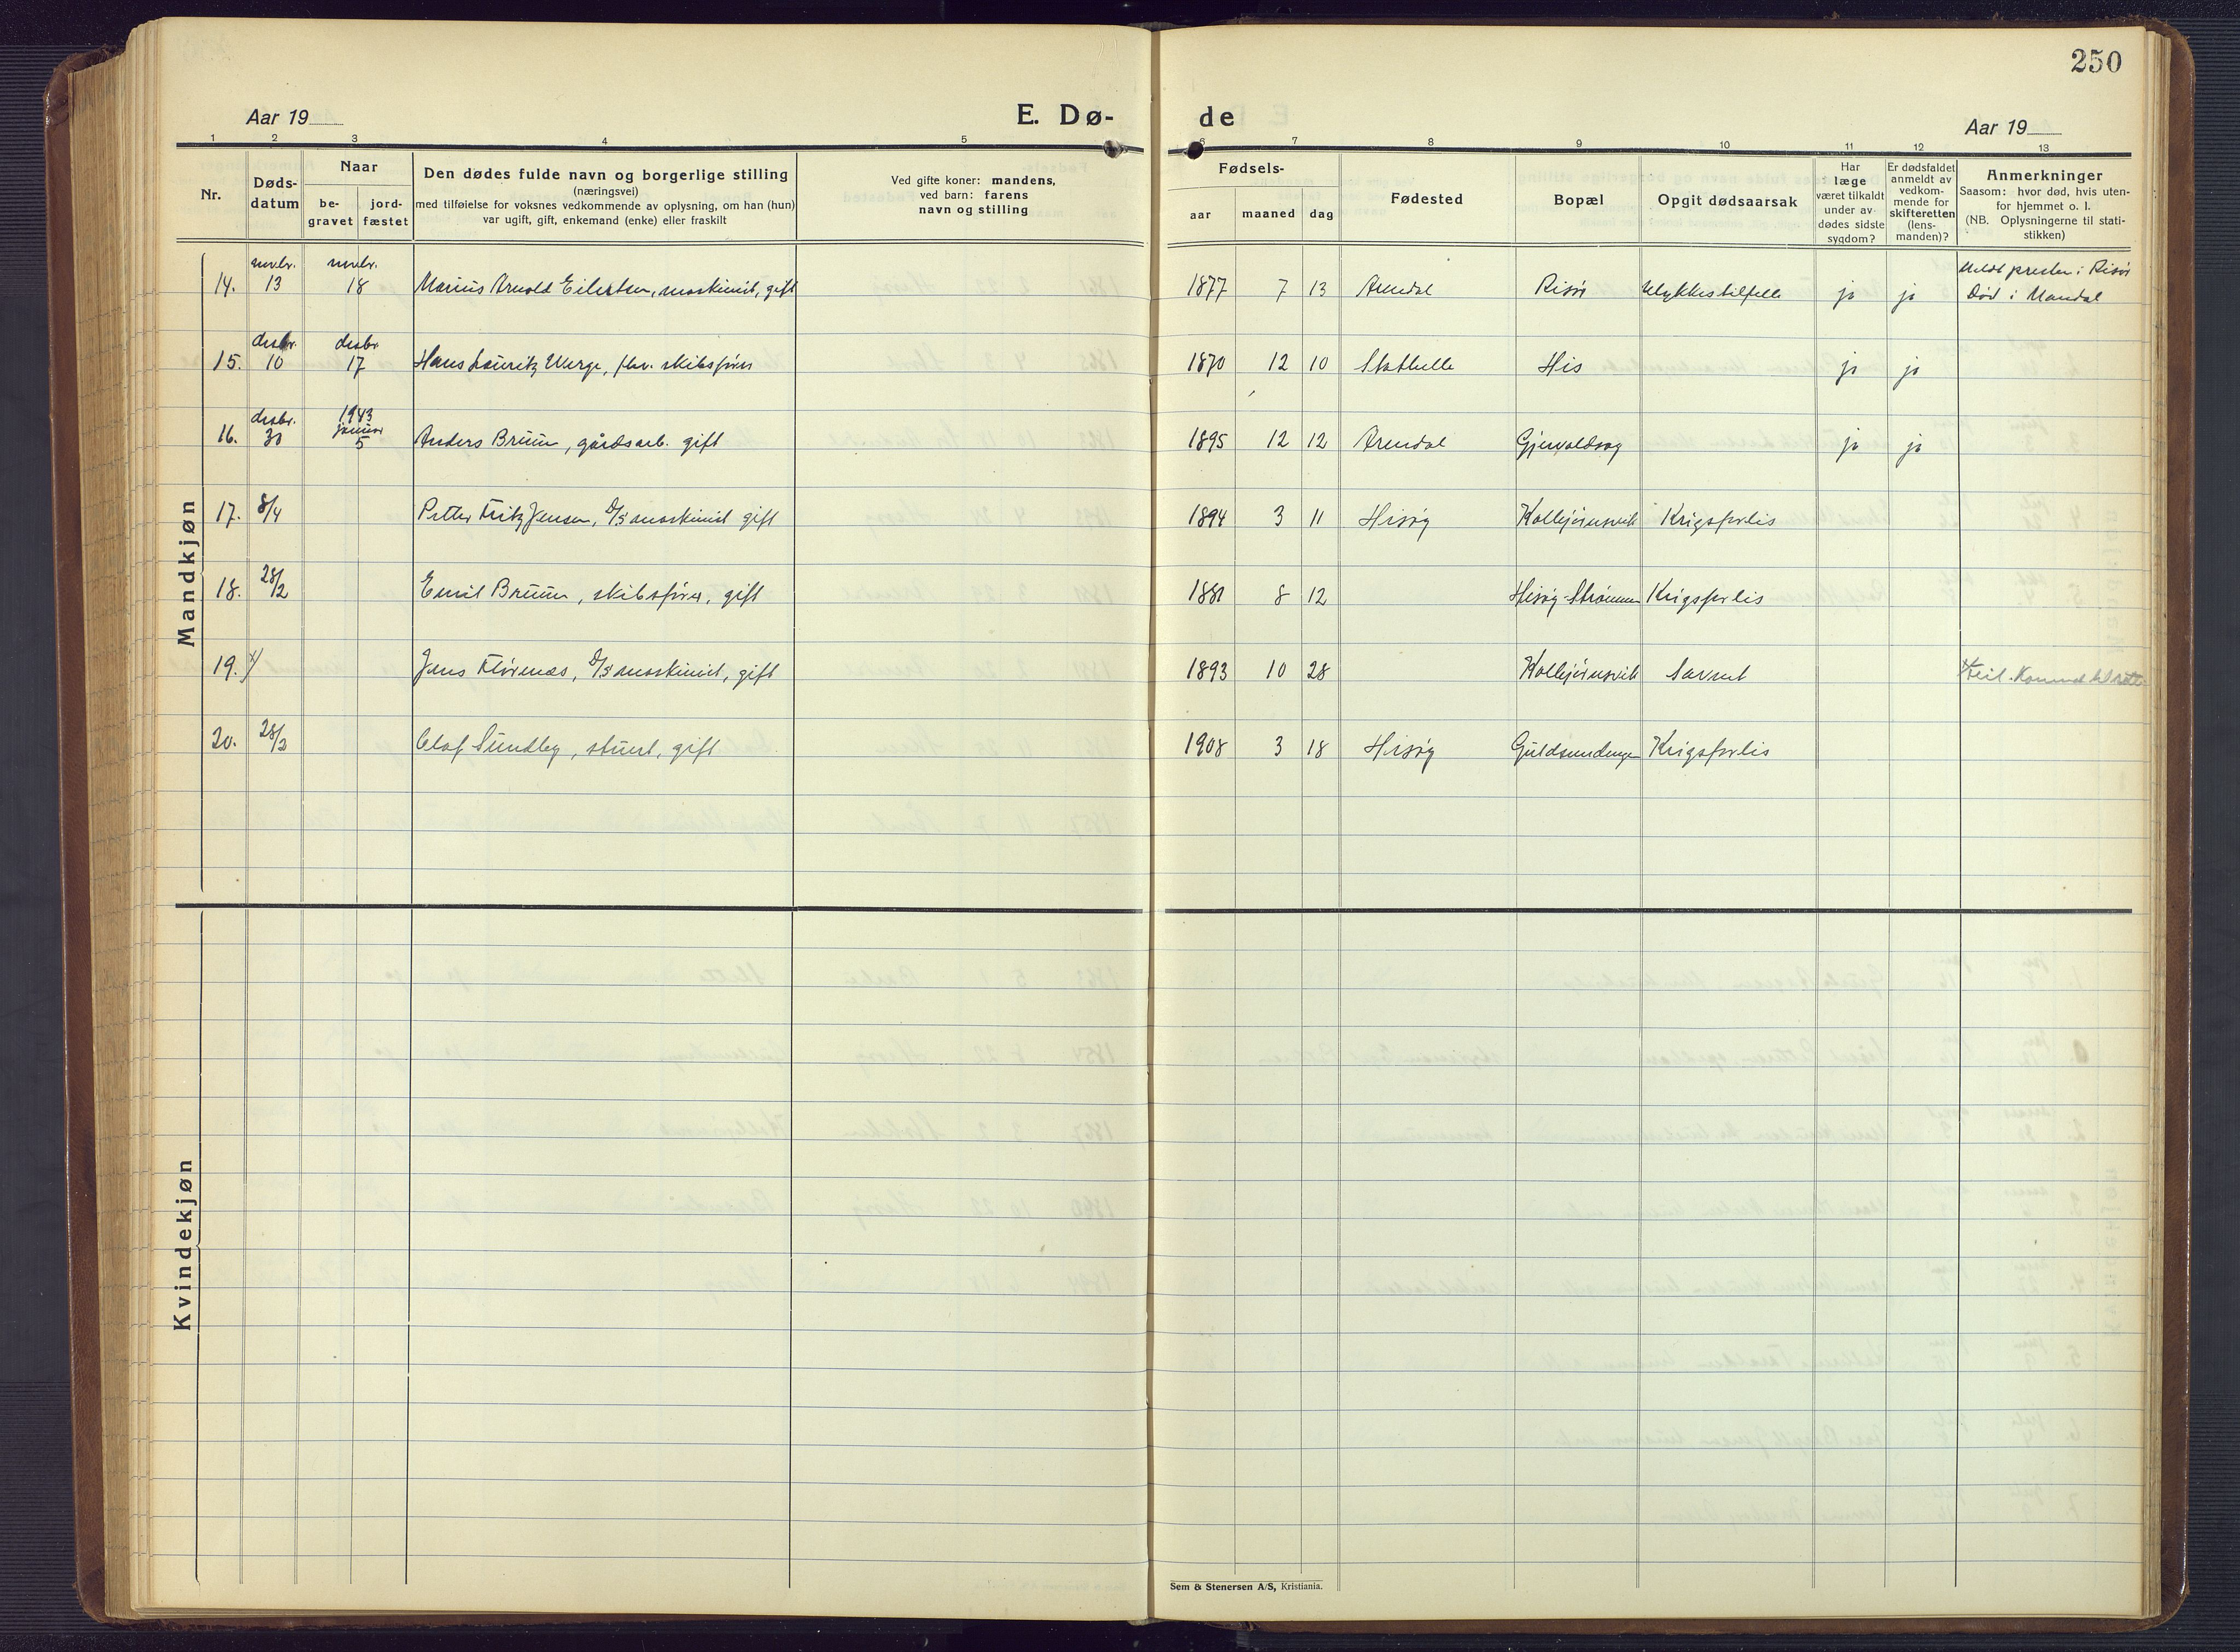 250
Aar 19
E. Dø-
de
Aar 19
1 2 3 4 5 6 7 8 9 10 11 12 13
Nr.
Døds-
datum
Naar
be-
gravet
jord-
fæstet
Den dødes fulde navn og borgerlige stilling
(næringsvei)
med tilføielse for voksnes vedkommende av oplysning, om han (hun)
var ugift, gift, enkemand (enke) eller fraskilt
Ved gifte koner: mandens,
ved barn: farens
navn og stilling
Fødsels-
aar maaned dag
Fødested
Bopæl
Opgit dødsaarsak
Har
læge
været tilkaldt
under av-
dødes sidste
sygdom?
Er dødsfaldet
anmeldt av
vedkom-
mende for
skifteretten
(lens-
manden)?
Anmerkninger
Saasom: hvor død, hvis uten-
for hjemmet o. l.
(NB. Oplysningerne til stati-
stikken)
Mandkjøn
novbr. novbr.
14. 13 18 Marius Arnold Eilertsen, maskinist, gift 1877 7 13 Arendal Risør Ulykkestilfelle ja ja Meldt presten i Risør
Død i Mandal
desbr. desbr.
15. 10 17 Hans Lauritz Werge, fhv. skibsfører 1870 12 10 Stathelle His ja ja
desbr. 1943
januar
16. 30 5 Anders Bruun, gårdsarb. gift 1895 12 12 Arendal Gjervoldsøy ja ja
17. 8/4 Petter Fritz Jensen, D/S maskinist gift 1894 3 11 Hisøy Kolbjørnsvik Krigsforlis
18. 28/2 Emil Bruun, skibsfører, gift 1881 8 12 Hisøy-Strømmen Krigsforlis
19. x/ Jens Flørenæs, D/S maskinist, gift 1893 10 28 Kolbjørnsvik Savnet x/ Feil. Kommet til rette
20. 28/2 Olaf Sundby, stuert, gift 1908 3 18 Hisøy Guldsmedengen Krigsforlis
Kvindekjøn
Sem & Stenersen A/S, Kristiania.